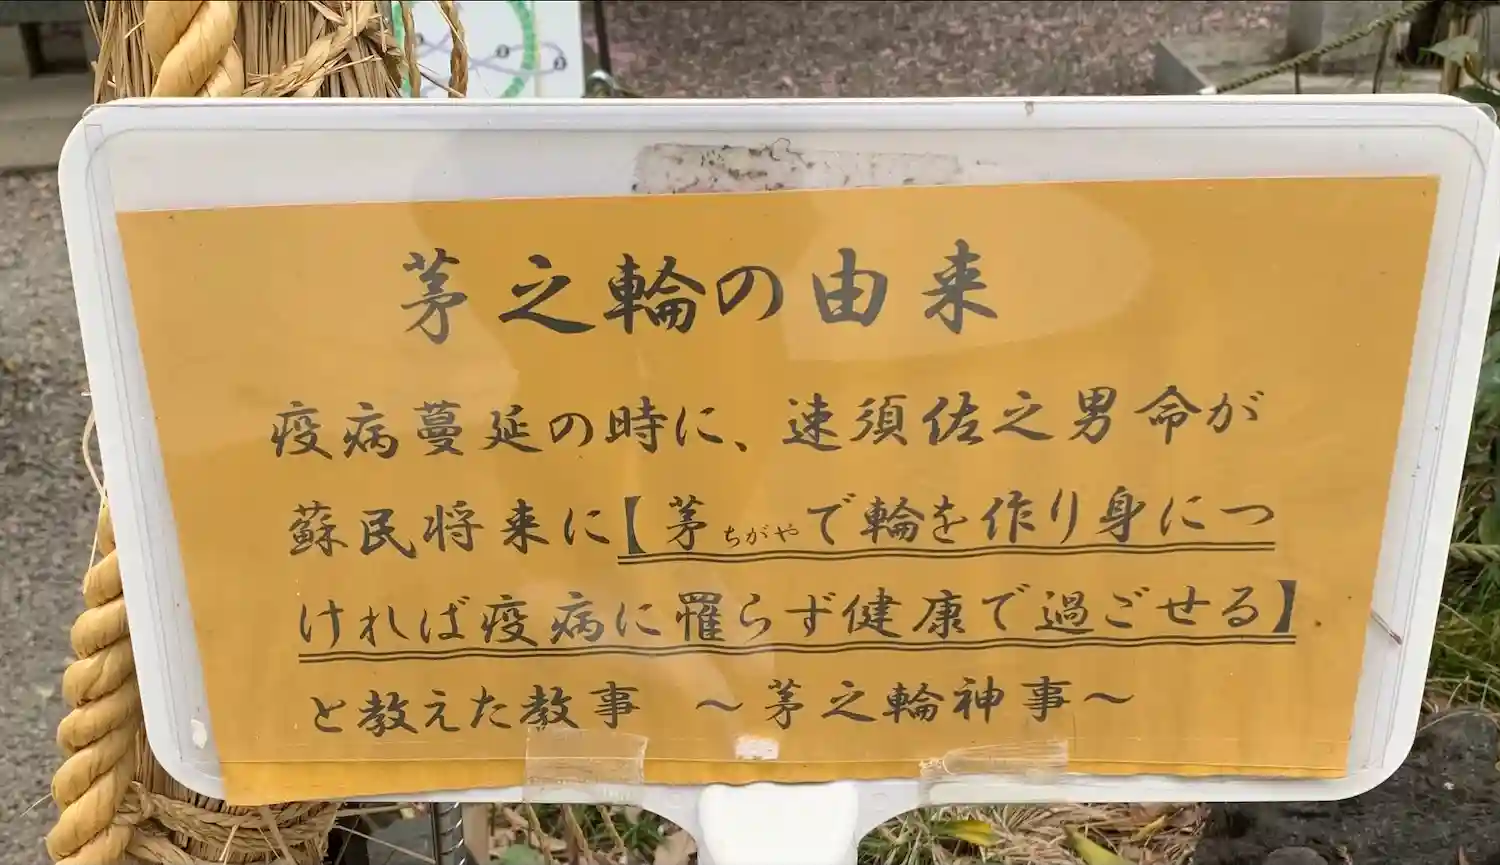 茅之輪の由来
疫病蔓延の時に、速須佐之男命が
蘇民将来に【茅ちがやで輪を作り身につ
ければ疫病に罹らず健康で過ごせる】
と教えた教事 ～茅之輪神事～